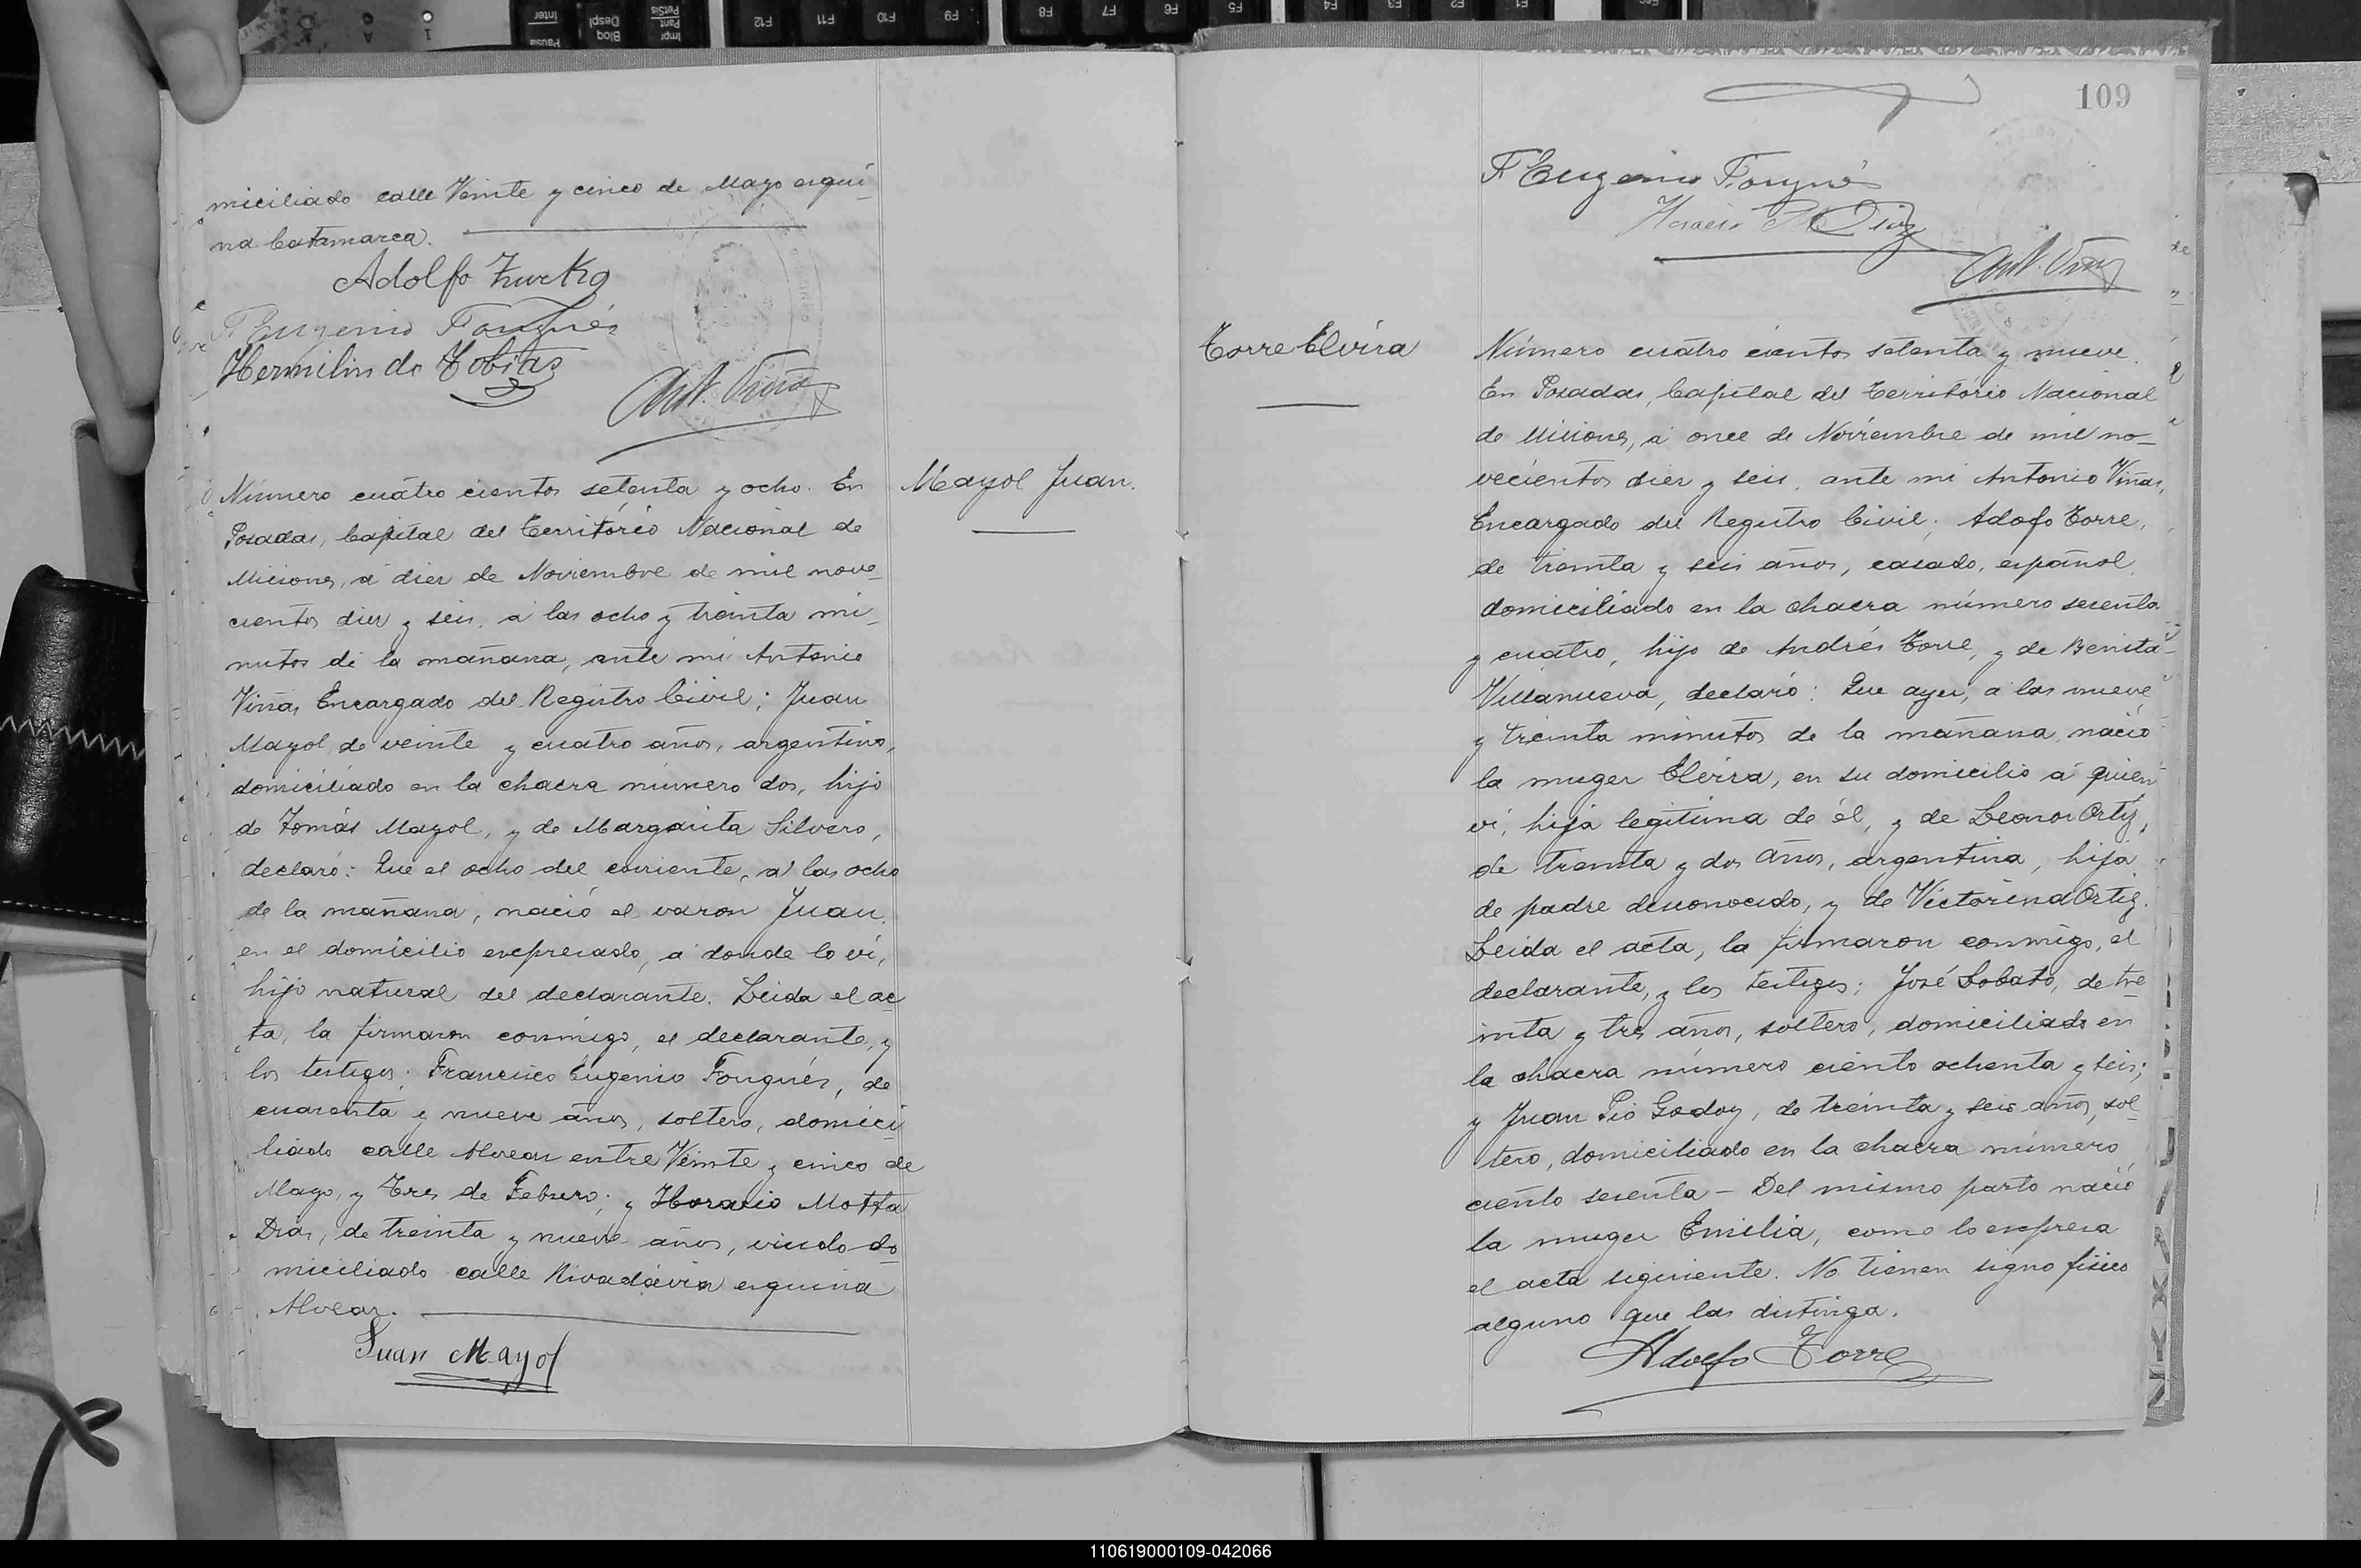 miciliado calle Veinte y cinco de Mayo esqui-
na Catamarca.
Adolfo
F Eugenio Fougués
Hermilindo Tobias
Ant. Viñas
Número cuatro cientos setenta y ocho. En
Posadas, Capital del Territorio Nacional de
Misiones, á diez de Noviembre de mil nove-
cientos diez y seis, á las ocho y treinta mi-
nutos de la mañana, ante mi Antonio
Viñas Encargado del Registro Civil; Juan
Mayol, de veinte y cuatro años, argentino,
domiciliado en la chacra número dos, hijo
de Tomás Mayol, y de Margarita Silvero,
declaró: Que el ocho del corriente, á las ocho
de la mañana, nació el varon Juan,
en el domicilio expresado, á donde lo ví,
hijo natural del declarante. Leida el ac-
ta, la firmaron conmigo, el declarante, y
los testigos: Francisco Eugenio Fougués, de
cuarenta y nueve años, soltero, domici-
liado calle Alvear entre Veinte y cinco de
Mayo, y Tres de Febrero; y Horacio Motta
Dias, de treinta y nueve años, viudo do-
miciliado calle Rivadavia esquina
Alvear.
Juan Mayol
Mayol Juan.
109
F Eugenio Fougués
Horacio M Diaz
Ant. Viñas
Torre Elvira
Número cuatro cientos setenta y nueve.
En Posadas, Capital del Territorio Nacional
de Misiones, á once de Noviembre de mil no-
vecientos diez y seis, ante mi Antonio Viñas,
Encargado del Registro Civil; Adofo Torre,
de treinta y seis años, casado, español,
domiciliado en la chacra número sesenta
y cuatro, hijo de Andrés Torre, y de Benita
Villanueva, declaró: Que ayer, á las nueve
y treinta minutos de la mañana, nació
la muger Elvira, en su domicilio á quien
ví, hija legitima de él, y de Leonor Ortiz,
de treinta y dos años, argentina, hija
de padre desconocido, y de Victorina Ortiz.
Leida el acta, la firmaron conmigo, el
declarante, y los testigos: José Lobato, de tre-
inta y tres años, soltero, domiciliado en
la chacra número ciento ochenta y seis;
y Juan Pio Godoy, de treinta y seis años, sol-
tero, domiciliado en la chacra número
ciento sesenta - Del mismo parto nació
la muger Emilia, como lo expresa
el acta siguiente. No tienen signo físico
alguno que las distinga.
Adolfo Torre
110619000109-042066